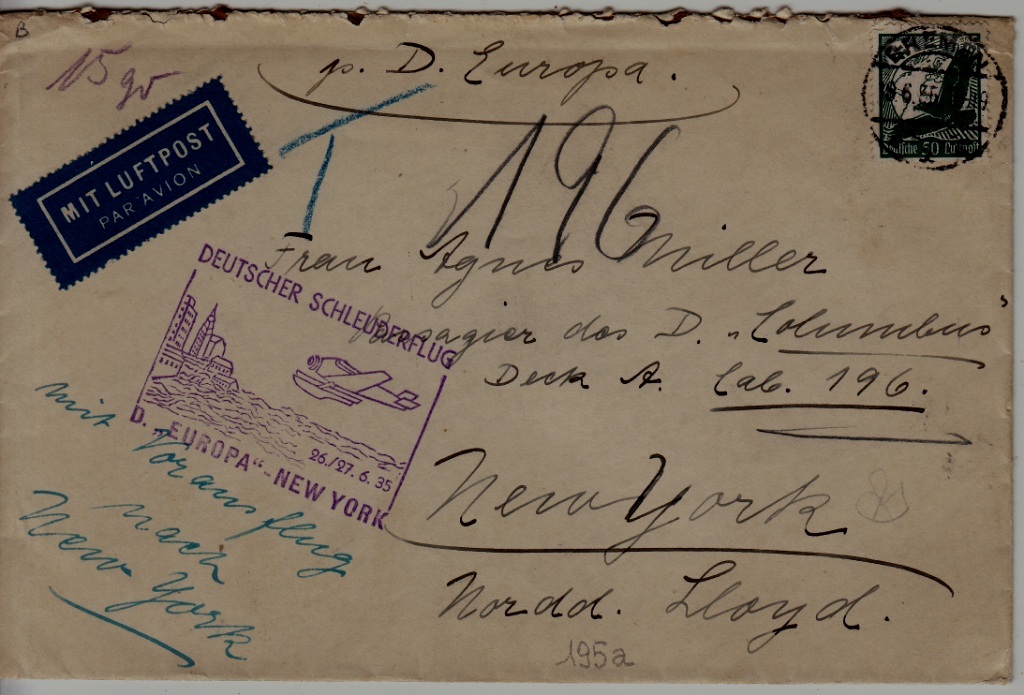 B
15 gr
p. D. Europa.
MIT LUFTPOST
PAR AVION
BREMEN
Deutsche 50 Luftpost
196
Frau Agnes Miller
Passagier des D. „Columbus"
Deck A. Cab. 196.
New York
Nordd. Lloyd.
DEUTSCHER SCHLEUDERFLUG
26./27. 6. 35
D. „EUROPA“-NEW YORK
mit Vorausflug
nach
New York
195a